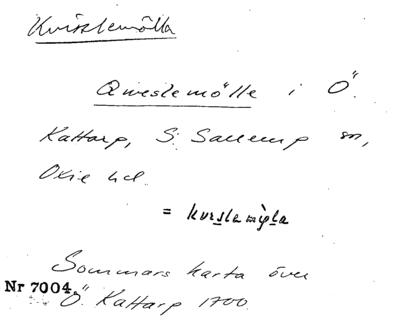 Kvisslemölla
Qweslemölle i Ö.
Kattarp, S. Sallerup sn,
Oxie hd.
= kvislamöla
Sommars karta över
Nr 7004. Ö. Kattarp 1700.